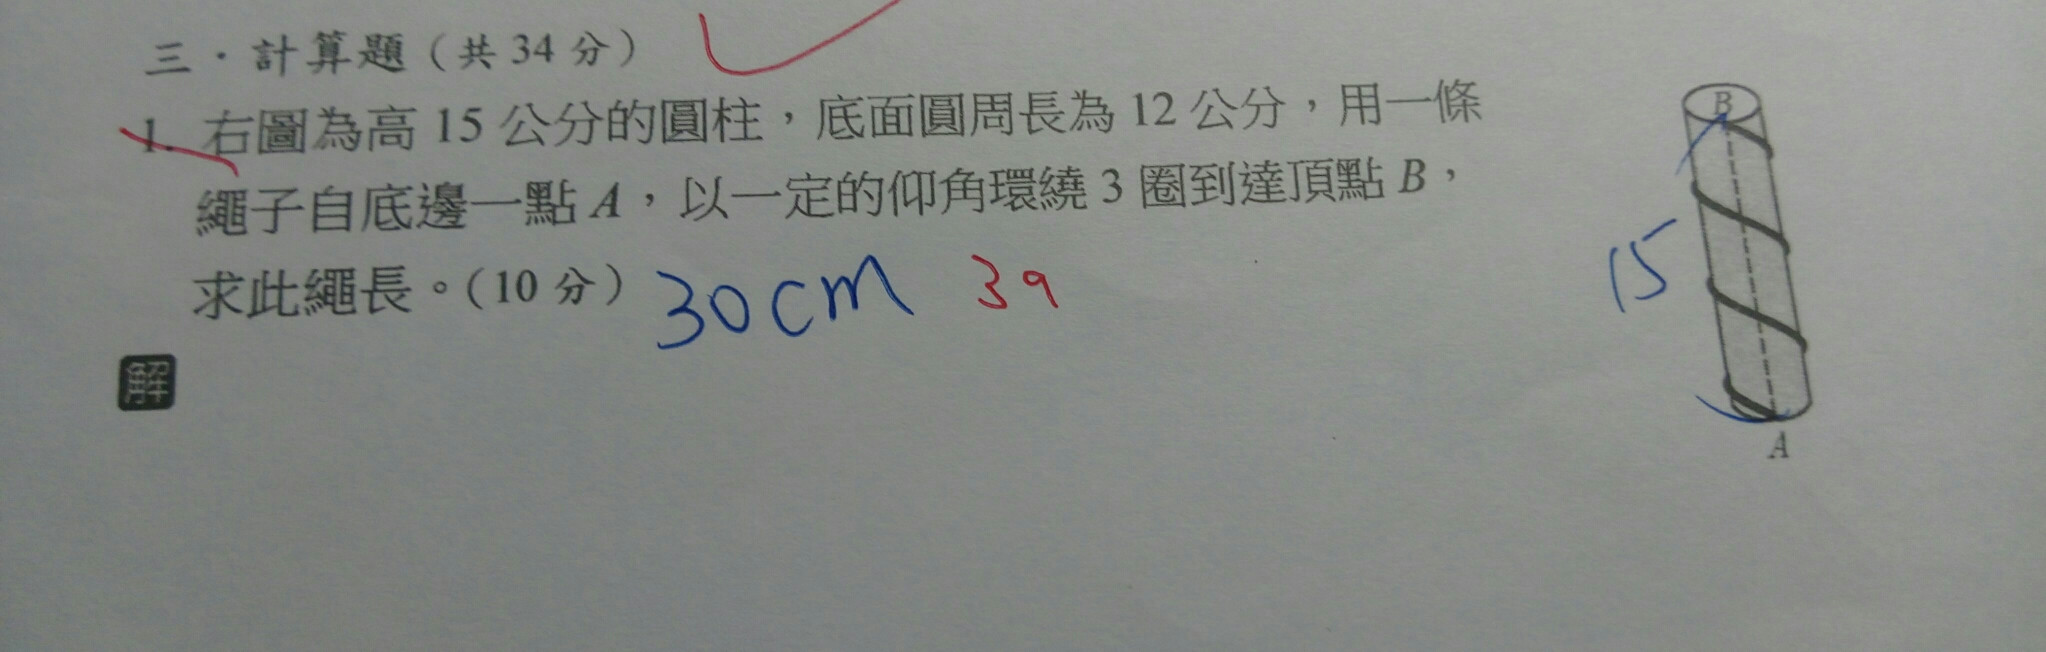 三．計算題（共 34 分）
1. 右圖為高 15 公分的圓柱，底面圓周長為 12 公分，用一條
繩子自底邊一點 A，以一定的仰角環繞 3 圈到達頂點 B，
求此繩長。（10 分） 30cm 39
解
B
15
A